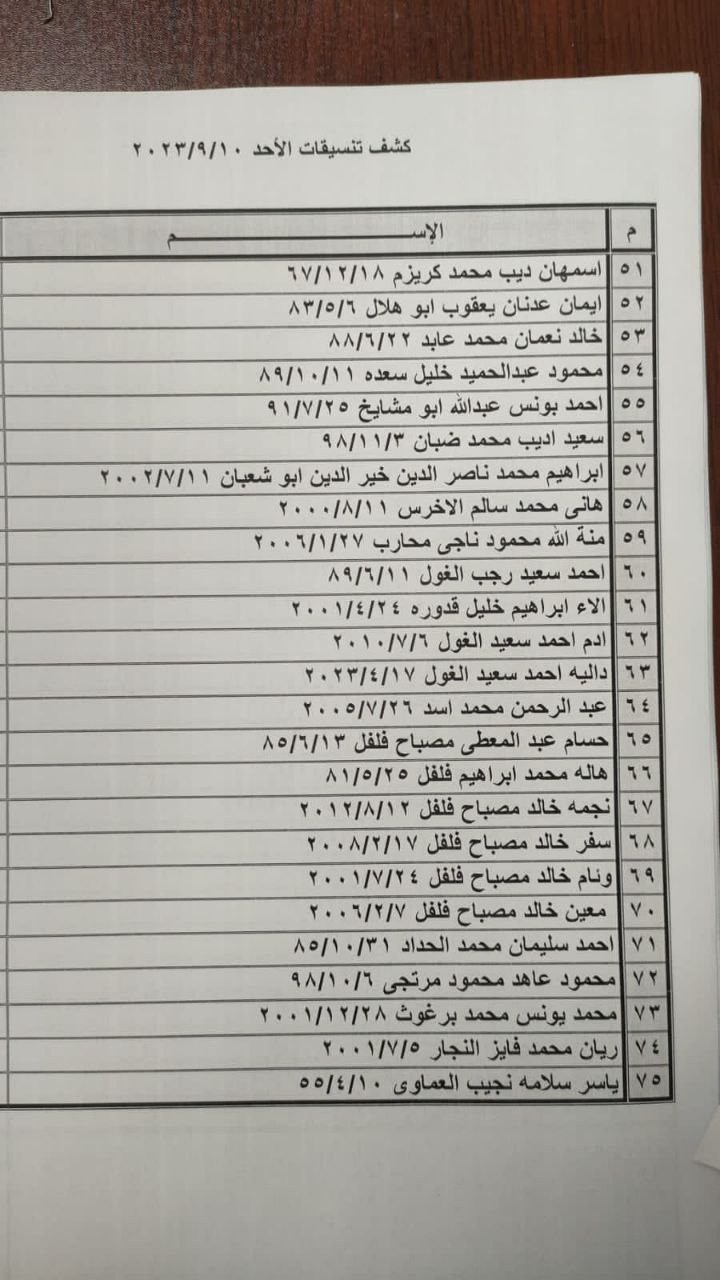 كشف تنسيقات الأحد ٢٠٢٣/٩/١٠
م الإســـــــــــــــــم
٥١ اسمهان ديب محمد كريزم ٦٧/١٢/١٨
٥٢ ايمان عدنان يعقوب ابو هلال ٨٣/٥/٦
٥٣ خالد نعمان محمد عابد ٨٨/٦/٢٢
٥٤ محمود عبدالحميد خليل سعده ٨٩/١٠/١١
٥٥ احمد بونس عبدالله ابو مشايخ ٩١/٧/٢٥
٥٦ سعيد اديب محمد ضبان ٩٨/١١/٣
٥٧ ابراهيم محمد ناصر الدين خير الدين ابو شعبان ٢٠٠٢/٧/١١
٥٨ هانى محمد سالم الاخرس ٢٠٠٠/٨/١١
٥٩ منة الله محمود ناجى محارب ٢٠٠٦/١/٢٧
٦٠ احمد سعيد رجب الغول ٨٩/٦/١١
٦١ الاء ابراهيم خليل قدوره ٢٠٠١/٤/٢٤
٦٢ ادم احمد سعيد الغول ٢٠١٠/٧/٦
٦٣ داليه احمد سعيد الغول ٢٠٢٣/٤/١٧
٦٤ عبد الرحمن محمد اسد ٢٠٠٥/٧/٢٦
٦٥ حسام عبد المعطى مصباح فلفل ٨٥/٦/١٣
٦٦ هاله محمد ابراهيم فلفل ٨١/٥/٢٥
٦٧ نجمه خالد مصباح فلفل ٢٠١٢/٨/١٢
٦٨ سفر خالد مصباح فلفل ٢٠٠٨/٢/١٧
٦٩ ونام خالد مصباح فلفل ٢٠٠١/٧/٢٤
٧٠ معين خالد مصباح فلفل ٢٠٠٦/٢/٧
٧١ احمد سليمان محمد الحداد ٨٥/١٠/٣١
٧٢ محمود عاهد محمود مرتجى ٩٨/١٠/٦
٧٣ محمد يونس محمد برغوث ٢٠٠١/١٢/٢٨
٧٤ ريان محمد فايز النجار ٢٠٠١/٧/٥
٧٥ ياسر سلامه نجيب العماوى ٥٥/٤/١٠